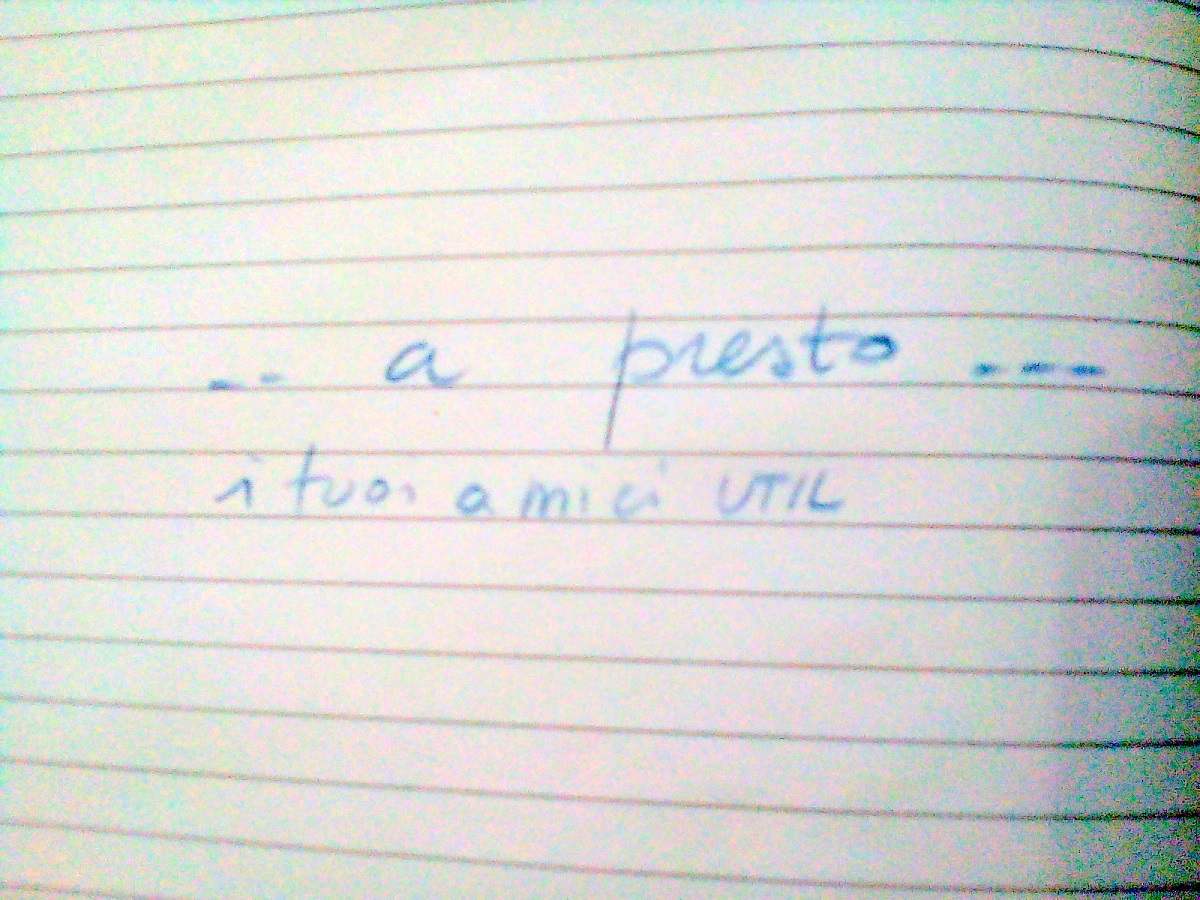 -- a presto ---
i tuoi amici UTIL